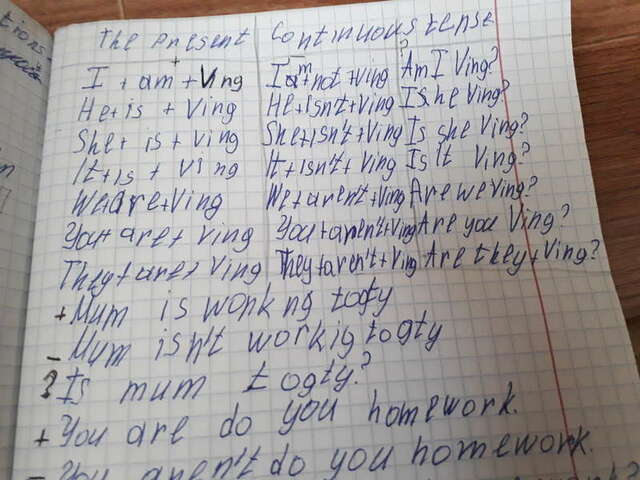 The Present Continuous tense
+ - ?
I + am + Ving I am+not+ving Am I Ving?
He+is + Ving He+isn't+ving Is he Ving?
She+ is + ving She+isn't+ving Is she Ving?
It+is + ving It+isn't+ving Is it Ving?
We+are+Ving We+aren't+ving Are we ving?
You+are+ Ving You+aren't+ving Are you Ving?
They+are+ Ving They+aren't+ving Are they+Ving?
+Mum is workng togty
-Mum isn't workig togty
? Is mum togty?
+You are do you homework.
-You aren't do you homework.